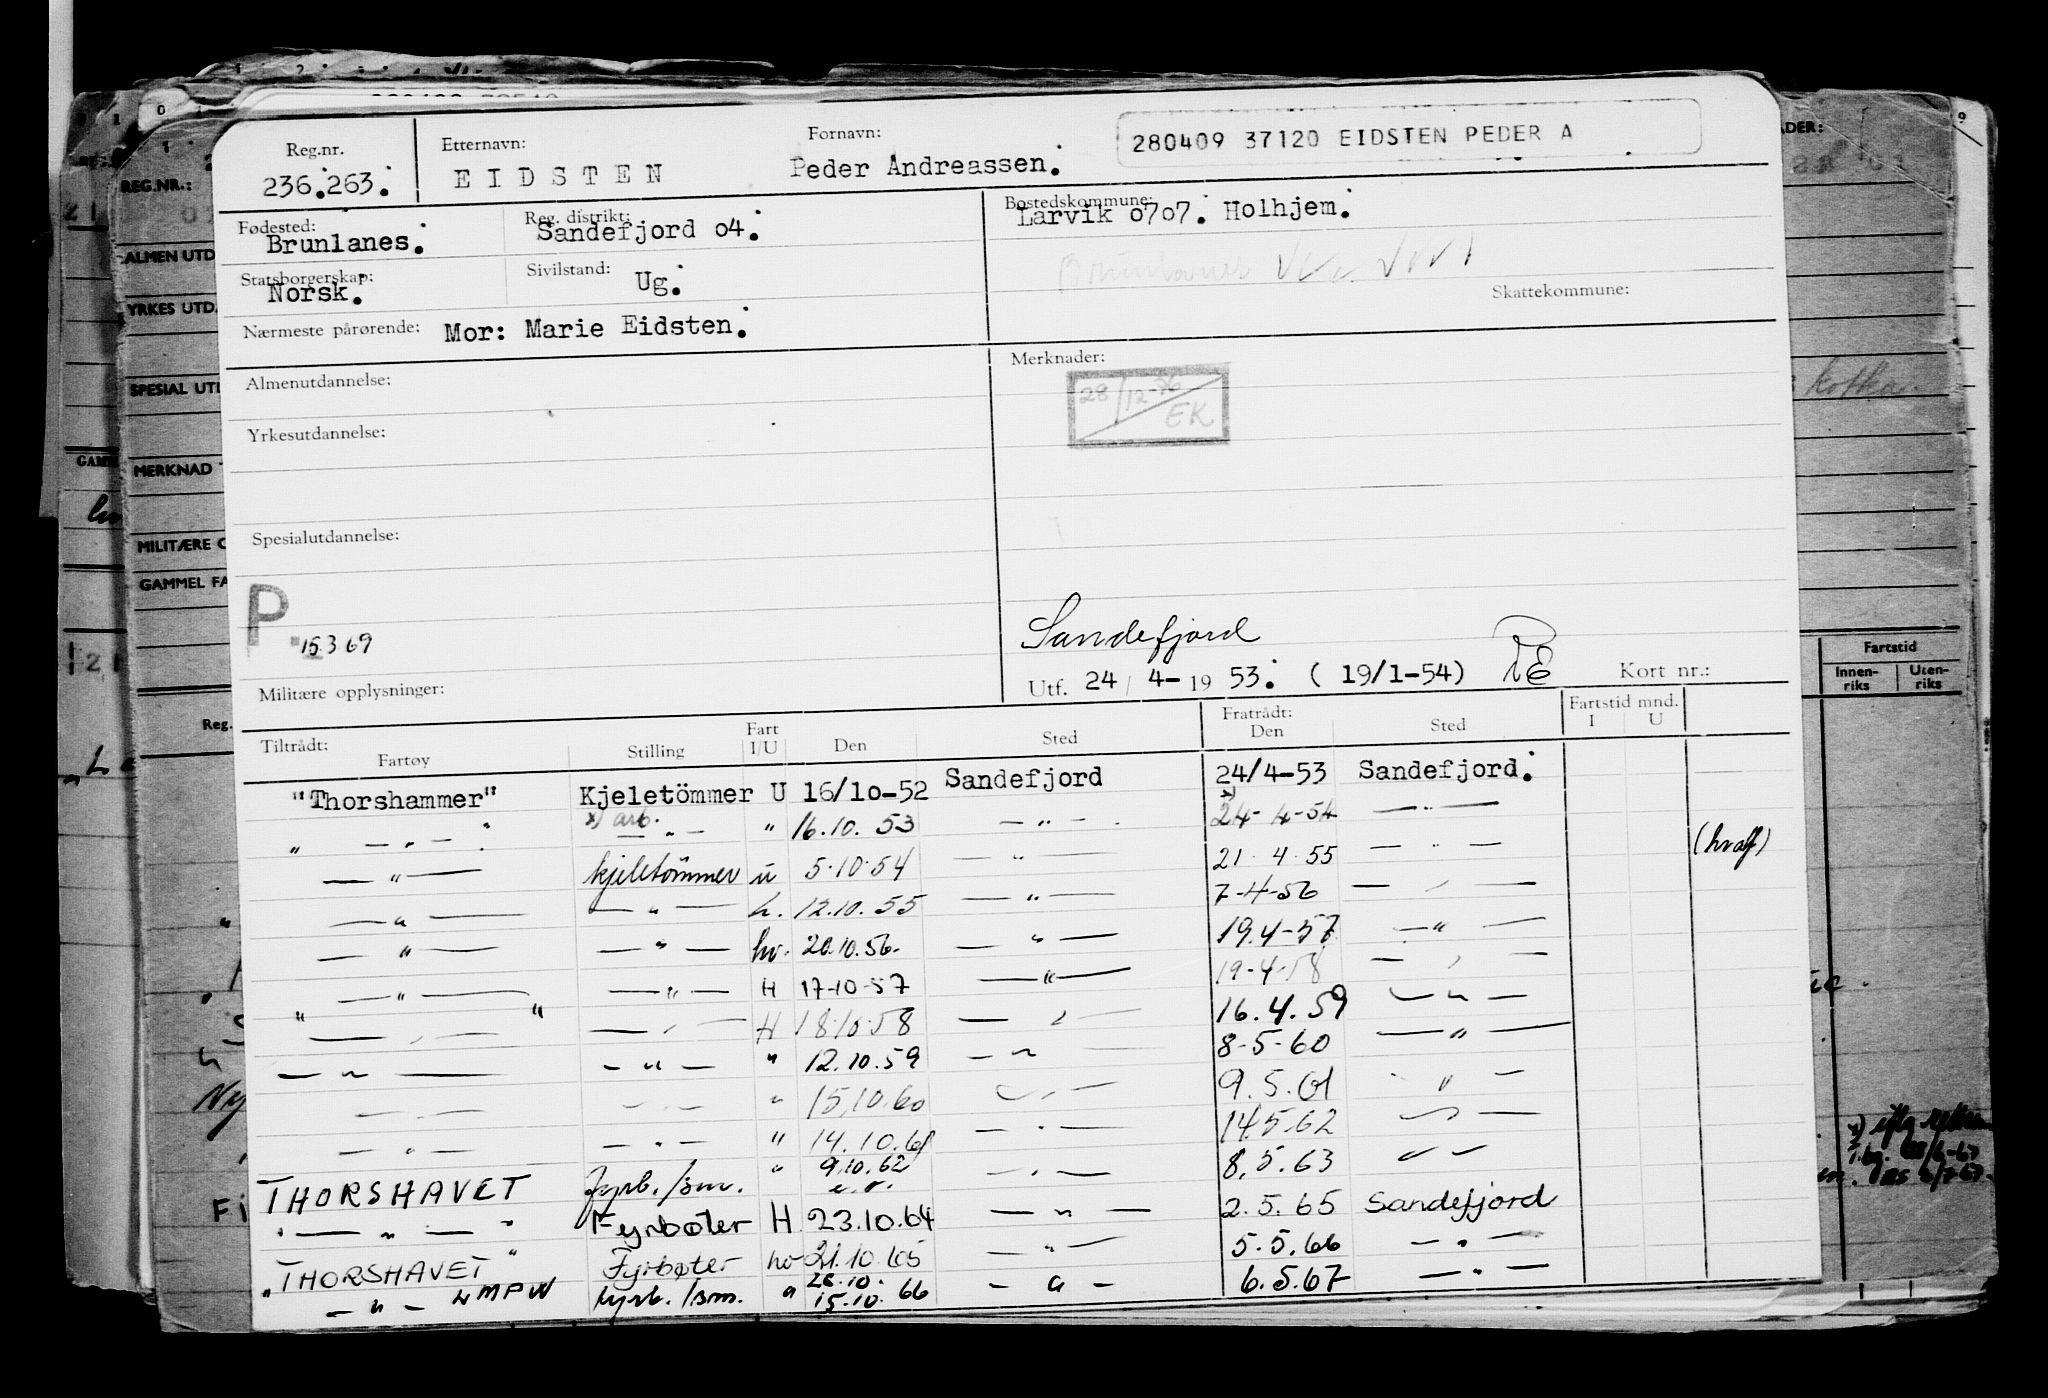 Reg.nr. Etternavn: Fornavn: 280409 37120 EIDSTEN PEDER A
236.263. EIDSTEN Peder Andreassen.
Fødested: Reg. distrikt: Bostedskommune:
Brunlanes. Sandefjord o4. Larvik o7o7. Holhjem.
Statsborgerskap: Sivilstand: Brunlanes
Norsk. Ug. Skattekommune:
Nærmeste pårørende: Mor: Marie Eidsten.
Almenutdannelse: Merknader:
28/12-76 EK
Yrkesutdannelse:
Spesialutdannelse:
P. 15.3 69
Sandefjord
Militære opplysninger: Utf. 24 / 4- 19 53. ( 19/1-54) Kort nr.:
Tiltrådt: Fart Fratrådt: Fartstid mnd.
Fartøy Stilling I/U Den Sted Den Sted I U
"Thorshammer" Kjeletömmer U 16/1o-52 Sandefjord 24/4-53 Sandefjord.
" — " — x) arb. — " — " 16.10. 53 — " — x) 24-4-54 — " —
— " — kjeletömmer u 5.10.54 — " — 21 4 55 — " — (hvalf)
— " — — " — h. 12.10. 55 — " — 7-4-56 — " —
— " — — " — hv. 20.10.56. — " — 19.4-57 — " —
— " — — " — H 17-10-57 — " — 19-4-58 — " —
" — " — " — " — H 18.10.58 — " — 16.4.59 — " —
— " — — " — " 12.10.59 — " — 8-5-60 — " —
— " — — " — " 15.10.60 — " — 9.5.61 — " —
— " — — " — " 14.10.61 — " — 14.5.62 — " —
THORSHAVET fyrb./sm. " 9.10.62 — " — 8.5.63 — " —
" — " — " Fyrbøter H 23.10.64 — " — 2.5.65 Sandefjord
"THORSHAVET" Fyrbøter hv 21.10.65 — " — 5.5.66 — " —
— " — LMPW fyrb./sm. " 28.10. 15.10. 66 — " — 6.5.67 — " —
REG.NR.:
ALMEN UTD
YRKES UTD.
SPESIAL UTD
MERKNAD
MILITÆRE O
GAMMEL FA
Reg.
Kotka.
Fartstid
Innen-riks Uten-riks